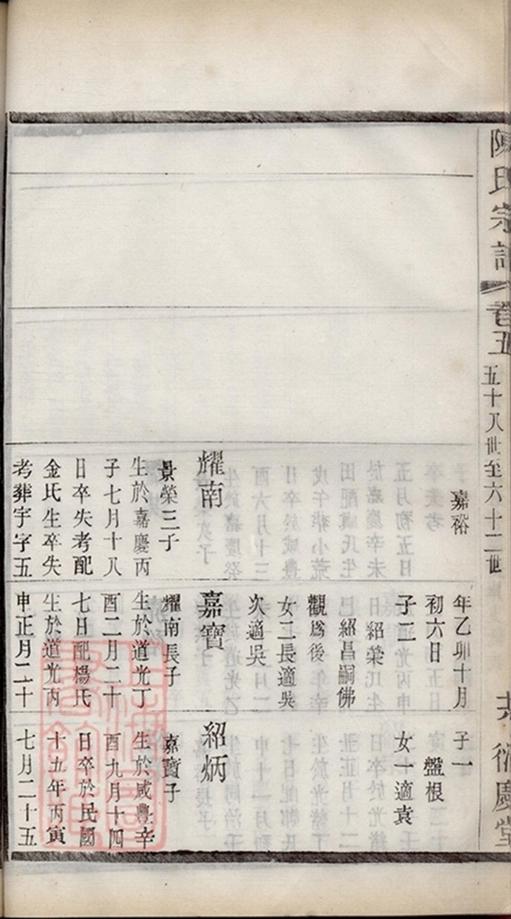 陳氏宗譜 卷五 五十八世至六十二世 衍慶堂
嘉裕
耀南
景榮三子
生於嘉慶丙
子七月十八
日卒失考配
金氏生卒失
考葬宇字五
年乙卯十月
初六日
子二
紹榮
紹昌嗣佛
觀爲後
女二長適吳
次適吳
嘉寶
耀南長子
生於道光丁
酉二月二十
七日配楊氏
生於道光丙
申正月二十
子一
盤根
女一適袁
紹炳
嘉寶子
生於咸豐辛
酉九月十四
日卒於民國
十五年丙寅
七月二十五